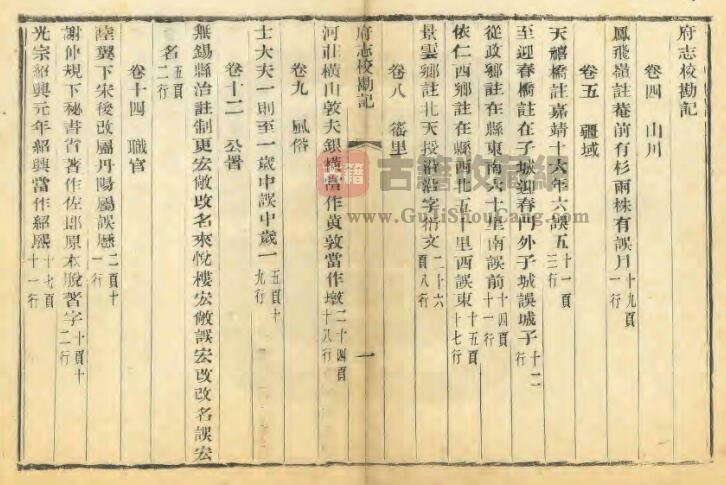 府志校勘記
卷四　山川
鳳飛嶺註菴前有杉兩株有誤月十九頁一行
卷五　疆域
天禧橋註嘉靖十六年六誤五十一頁三行
至迎春橋註在子城迎春門外子城誤城子十二行
從政鄉註在縣東南六十里南誤前十四頁十一行
依仁西鄉註在縣西北五十里西誤東十五頁十七行
景雲鄉註北天授沿沿字衍文二十六頁八行
卷八　徭里
府志校勘記　一
河莊橫山敦夫銀橫舊作黃敦當作墩二十四頁十八行
卷九　風俗
士大夫一則至一歲中誤中歲一五頁十九行
卷十二　公署
無錫縣治註制更宏敞改名來悅樓宏敞誤宏改改名誤宏
名五頁二行
卷十四　職官
陸翼下宋後改屬丹陽屬誤歷二頁十一行
謝仲規下秘書省著作佐郎原本脫著字十頁十二行
光宗紹興元年紹興當作紹熙十七頁十一行
古籍收藏網
www.GujiShouCang.com